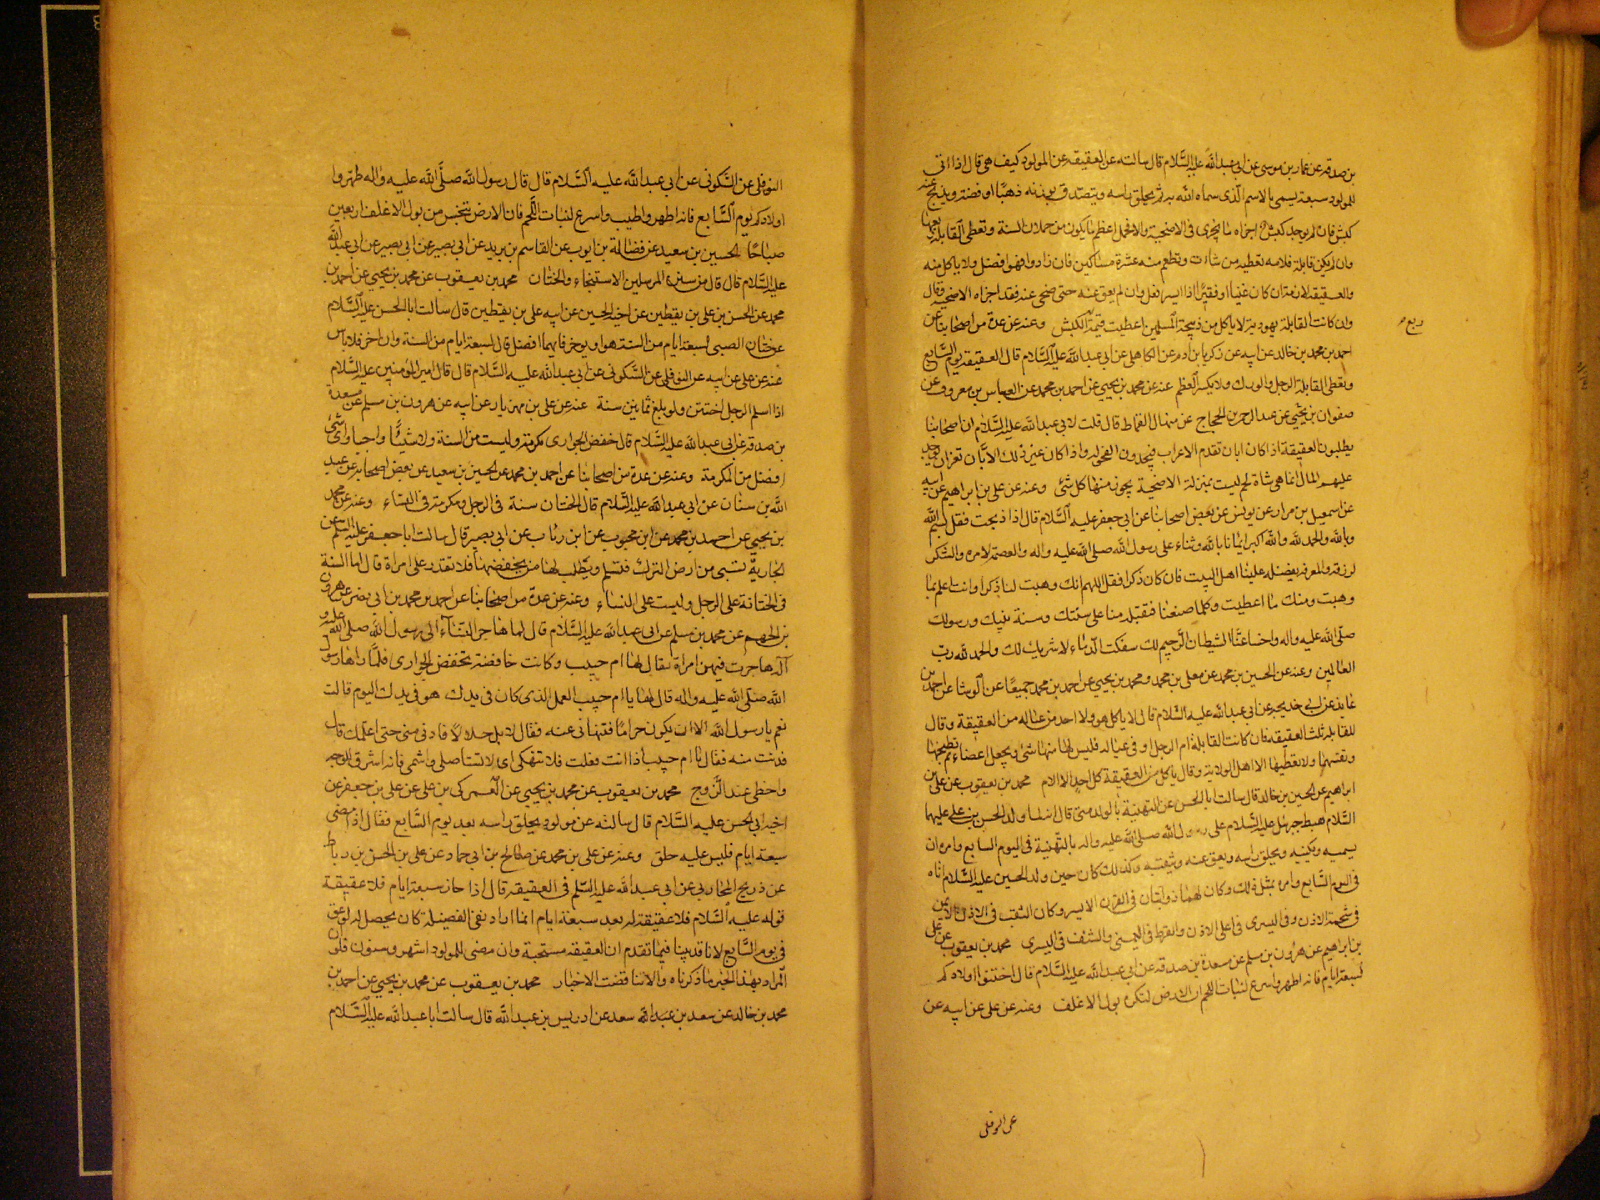 بن صدقه عن عمار بن موسى عن ابى عبد الله عليه السلام قال سالته عن العقيقه عن المولود كيف هى قال اذا اتى
للمولود سبعة يسمى بالاسم الذى سماه الله به ثم يحلق راسه ويتصدق بوزنه ذهبا او فضة ويذبح عنه
كبش فان لم يوجد كبش اجزاه ما يجزى فى الاضحية والا فحمل اعظم ما يكون من حملان السنة وتعطى القابلة ربعها
وان لم يكن قابلة فلامه تعطيه من شاءت وتطعم منه عشرة مساكين فان زادوا فهو افضل ولا ياكل منه
والعقيقه لازمة ان كان غنيا او فقيرا اذا ايسر فعل وان لم يعق عنه حتى ضحى عنه فقد اجزاه الاضحية وقال
وان كانت القابلة يهودية لا ياكل من ذبيحة المسلمين اعطيت قيمة ربع الكبش وعنه عن عدة من اصحابنا عن
احمد بن محمد بن خالد عن ابيه عن زكريا بن ادم عن الكاهلى عن ابى عبد الله عليه السلام قال العقيقه يوم السابع
وتعطى القابلة الرجل والورك ولا يكسر العظم عنه عن محمد بن يحيى عن احمد بن محمد عن العباس بن معروف عن
صفوان بن يحيى عن عبد الرحمن بن الحجاج عن منهال القماط قال قلت لابى عبد الله عليه السلام ان اصحابنا
يطلبون العقيقة اذا كان ابان تقدم الاعراب فيجدون الفحولة واذا كان غير ذلك الابان تعزان يوجد
عليهم المال انما هى شاة لحم ليست بمنزلة الاضحية يجزى منها كل شئ وعنه عن على بن ابراهيم عن ابيه
عن اسمعيل بن مرار عن يونس عن بعض اصحابنا عن ابى جعفر عليه السلام قال اذا ذبحت فقل بسم الله
وبالله والحمد لله والله اكبر ايمانا بالله وثناء على رسول الله صلى الله عليه واله والعصمة لامره والشكر
لرزقه والمعرفة بفضله علينا اهل البيت فان كان ذكرا فقل اللهم انك وهبت لنا ذكرا وانت اعلم بما
وهبت ومنك ما اعطيت وكلما صنعنا فتقبله منا على سنتك وسنة نبيك ورسولك
صلى الله عليه واله واخسا عنا الشيطان الرجيم لك سفكت الدماء لا شريك لك والحمد لله رب
العالمين وعنه عن الحسين بن محمد عن معلى بن محمد ومحمد بن يحيى عن احمد بن محمد جميعا عن الوشا عن احمد بن
عايذ عن ابى خديجه عن ابى عبد الله عليه السلام قال لا ياكل هو ولا احد من عياله من العقيقة وقال
للقابله ثلث العقيقه فان كانت القابلة ام الرجل او فى عياله فليس لها منها شئ ويجعل اعضاء ثم يطبخها
ويقسمها ولا يعطيها الا اهل الولاية وقال ياكل من العقيقة كل احد الا الام محمد بن يعقوب عن على بن
ابراهيم عن الحسين بن خالد قال سالت ابا الحسن عن التهنية بالولد متى قال انه لما ولد الحسن بن على عليهما
السلام هبط جبرئيل عليه السلام على رسول الله صلى الله عليه واله بالتهنية فى اليوم السابع وامره ان
يسميه ويكنيه ويحلق راسه ويعق عنه ويثقب اذنه وكذلك كان حين ولد الحسين عليه السلام اتاه
فى اليوم السابع وامره بمثل ذلك وكان لهما ذوابتان فى القرن الايسر وكان الثقب فى الاذن اليمنى
فى شحمة الاذن وفى اليسرى فى اعلى الاذن والقرط فى اليمنى والشنف فى اليسرى محمد بن يعقوب عن على
بن ابراهيم عن هرون بن مسلم عن مسعدة بن صدقه عن ابى عبد الله عليه السلام قال اختنوا اولادكم
لسبعة ايام فانه اطهر واسرع لنبات اللحم ان الارض لتكره بول الاغلف وعنه عن على عن ابيه عن
ربع
عن النوفلى
النوفلى عن السكونى عن ابى عبد الله عليه السلام قال قال رسول الله صلى الله عليه واله طهروا
اولادكم يوم السابع فانه اطهر واطيب واسرع لنبات اللحم فان الارض تنجس من بول الاغلف اربعين
صباحا الحسين بن سعيد عن فضالة بن ايوب عن القاسم بن بريد عن ابى بصير عن ابى عبد الله
عليه السلام قال قال من سنن المرسلين الاستنجاء والختان محمد بن يعقوب عن محمد بن يحيى عن احمد بن
محمد عن الحسن بن على بن يقطين عن اخيه الحسين عن ابيه على بن يقطين قال سالت ابا الحسن عليه السلام
عن ختان الصبى لسبعة ايام من السنة هو او يوخر فايهما افضل قال لسبعة ايام من السنة وان اخر فلا باس
عنه عن على عن ابيه عن النوفلى عن السكونى عن ابى عبد الله عليه السلام قال قال امير المؤمنين عليه السلام
اذا اسلم الرجل اختتن ولو بلغ ثمانين سنة عنه عن على بن مهزيار عن ابيه عن هرون بن مسلم عن مسعدة
بن صدقه عن ابى عبد الله عليه السلام قال خفض الجوارى مكرمة وليست من السنة ولا شيئا واجبا واى شئ
افضل من المكرمة وعنه عن عدة من اصحابنا عن احمد بن محمد عن الحسين بن سعيد عن بعض اصحابه عن عبد
الله بن سنان عن ابى عبد الله عليه السلام قال الختان سنة فى الرجل ومكرمة فى النساء وعنه عن محمد
بن يحيى عن احمد بن محمد عن ابن محبوب عن ابن رئاب عن ابى بصير قال سالت ابا جعفر عليه السلم عن
الجارية تسبى من ارض الترك فتسلم ويطلب لها من يخفضها فلا تقدر على امراة قال اما السنة
فى الختانة على الرجل وليست على النساء وعنه عن عدة من اصحابنا عن احمد بن محمد بن ابى نصر عن هرون
بن الجهم عن محمد بن مسلم عن ابى عبد الله عليه السلام قال لما هاجر النساء الى رسول الله صلى الله عليه و
اله هاجرت فيهن امراة يقال لها ام حبيب وكانت خافضة تخفض الجوارى فلما راها رسول
الله صلى الله عليه واله قال لها يا ام حبيب العمل الذى كان فى يدك هو فى يدك اليوم قالت
نعم يا رسول الله الا ان يكون حراما فتنهانى عنه فقال لا بل حلالا فادنى منى حتى اعلمك قال
فدنت منه فقال يا ام حبيب اذا انت فعلت فلا تنهكى اى لا تستاصلى واشمى فانه اشرق للوجه
واحظى عند الزوج محمد بن يعقوب عن محمد بن يحيى عن العمركى بن على عن على بن جعفر عن
اخيه ابى الحسن عليه السلام قال سالته عن مولود يحلق راسه بعد يوم السابع فقال اذا مضى
سبعة ايام فليس عليه حلق وعنه عن على بن محمد عن صالح بن ابى حماد عن على بن الحسن بن رباط
عن ذريح المحاربى عن ابى عبد الله عليه السلم فى العقيقه قال اذا جاز سبعة ايام فلا عقيقة
قوله عليه السلام فلا عقيقة له بعد سبعة ايام انما اراد نفى الفضيلة كان يحصل له لو عق
فى يوم السابع لانا قد بينا فيما تقدم ان العقيقه مستحبة وان مضى للمولود اشهر وسنون فلو
المراد بهذا الخبر ما ذكرناه والا تناقضت الاخبار محمد بن يعقوب عن محمد بن يحيى عن احمد بن
محمد بن خالد عن سعد بن عبد الله سعد عن ادريس بن عبد الله قال سالت ابا عبد الله عليه السلام